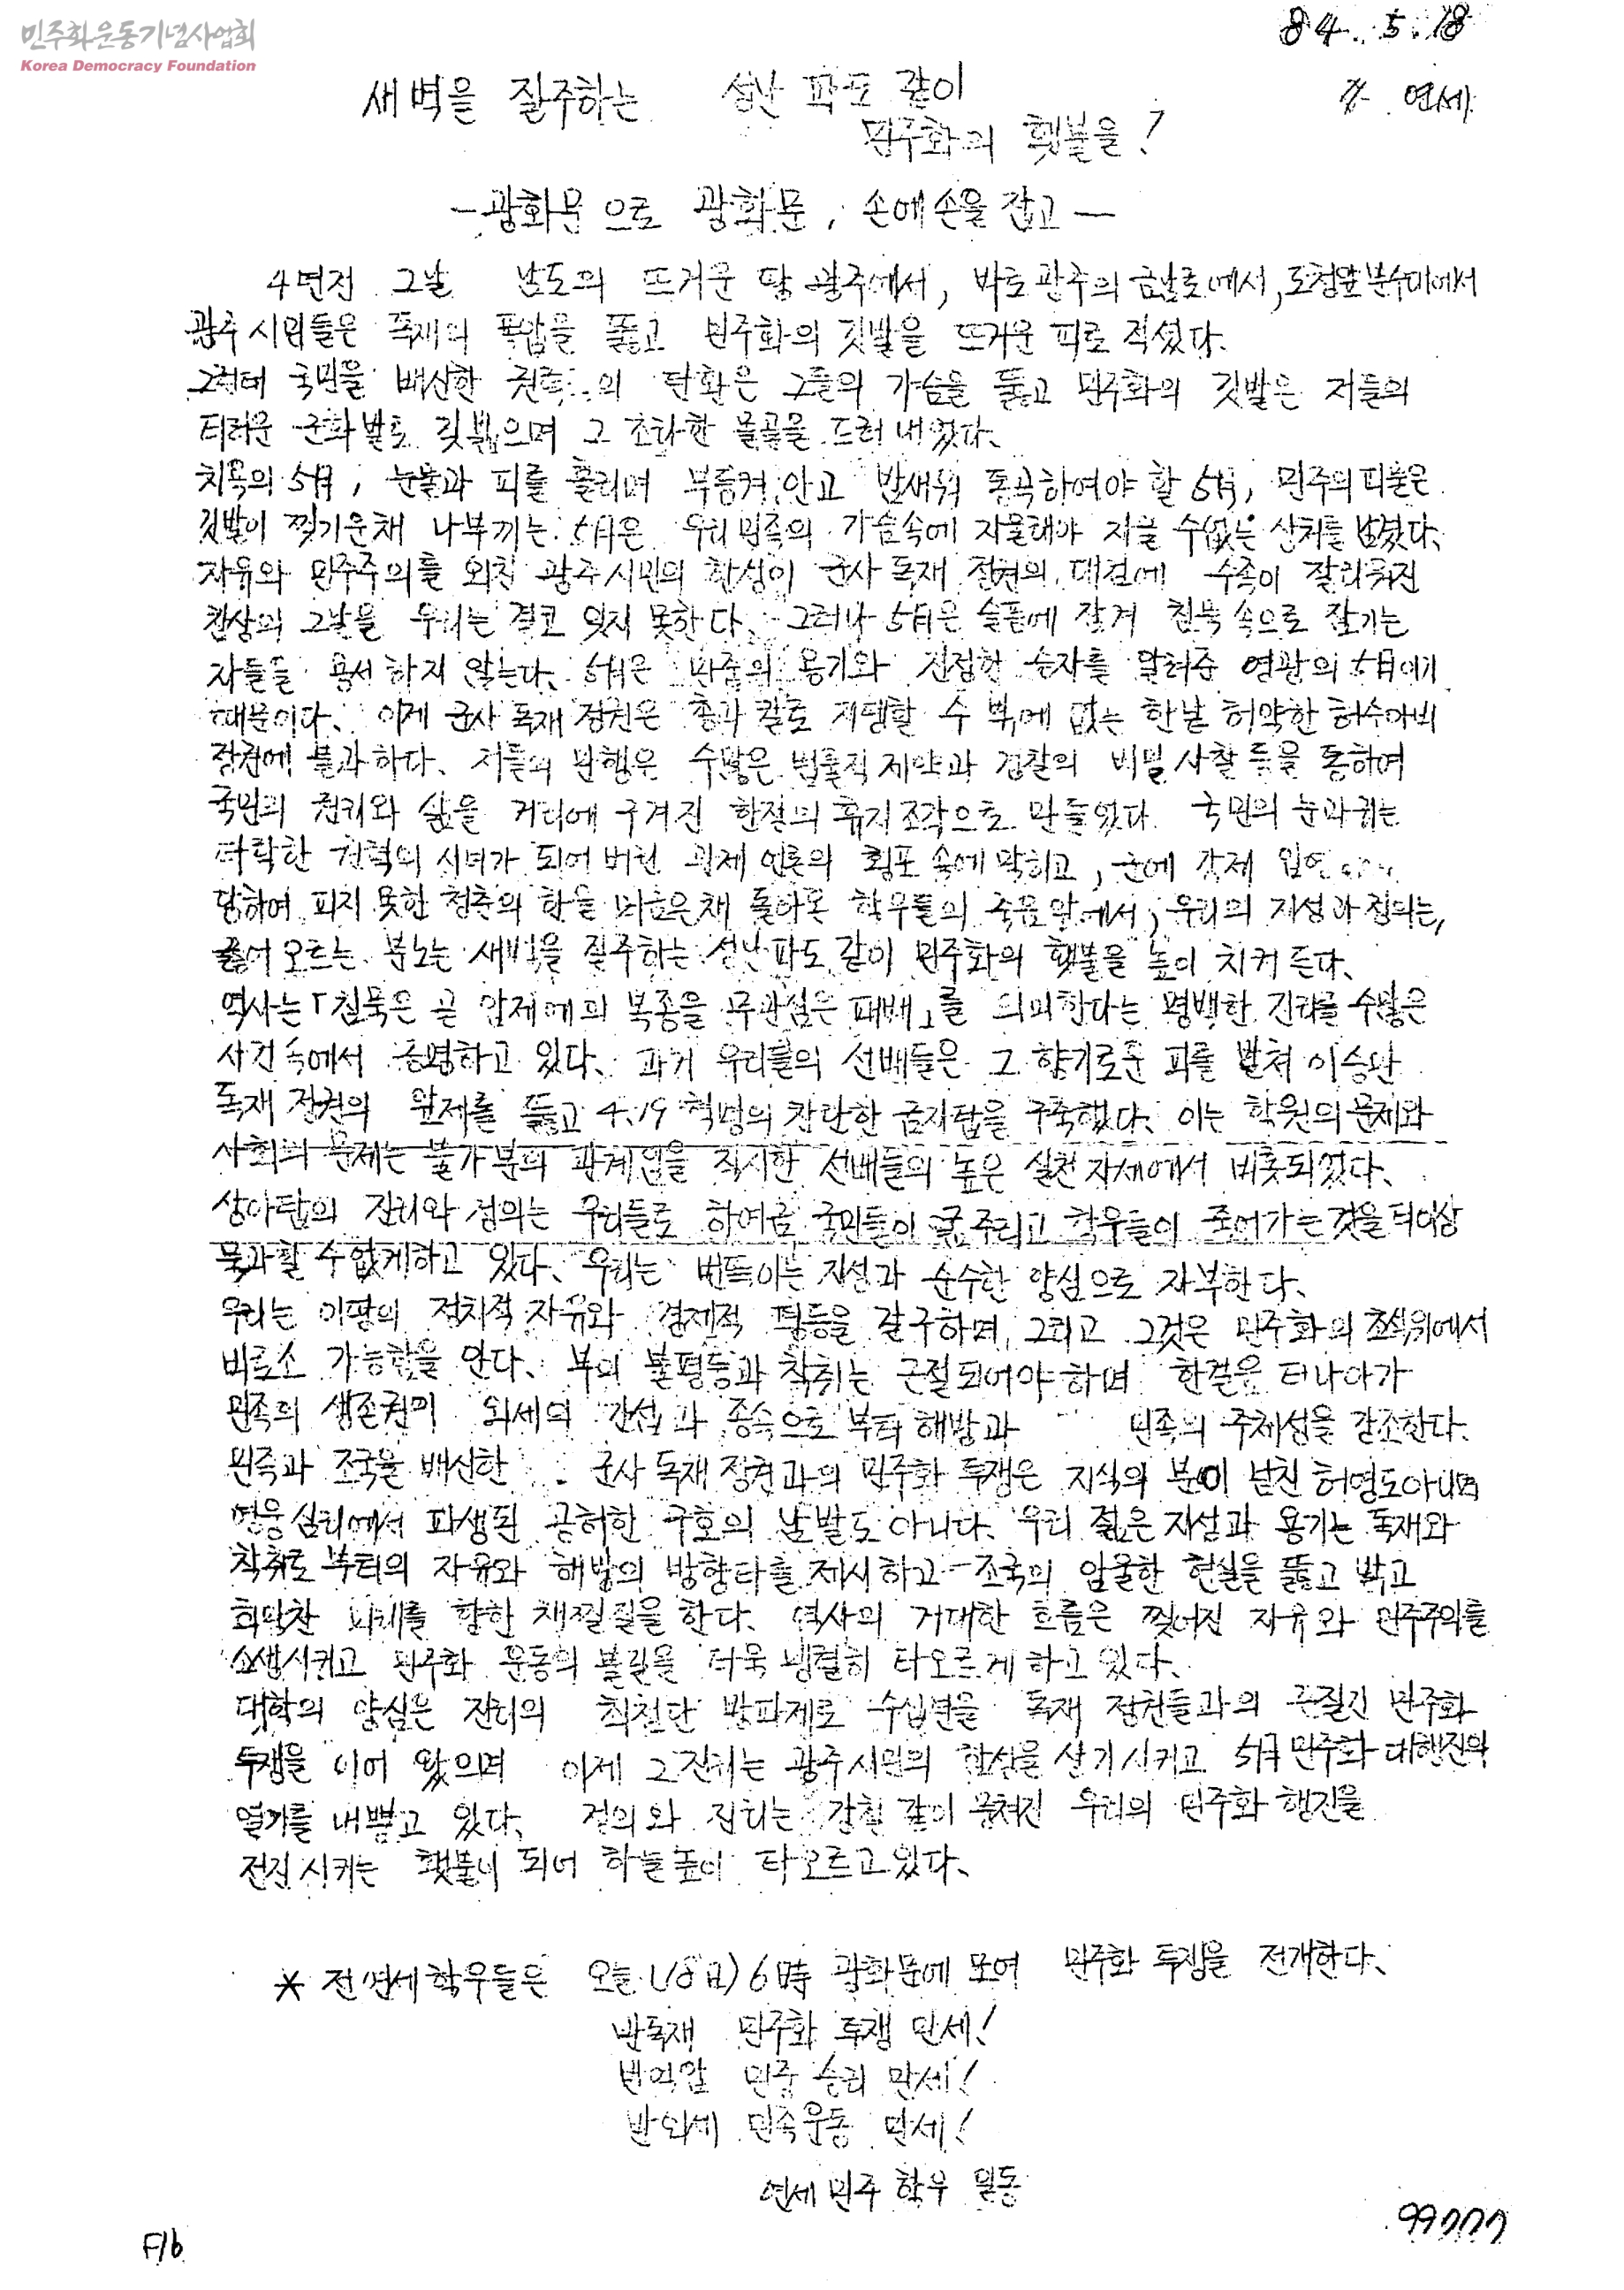 민주화운동기념사업회
Korea Democracy Foundation
84. 5. 18
연세
새벽을 질주하는 성난 파도 같이
민주화의 횃불을!
-광화문으로 광화문, 손에손을 잡고-
4년전 그날 남도의 뜨거운 땅 광주에서, 바로 광주의 금남로에서, 도청앞 분수대에서
광주 시민들은 독재의 폭압을 뚫고 민주화의 깃발을 뜨거운 피로 적셨다.
그런데 국민을 배신한 권력의 탄환은 그들의 가슴을 뚫고 민주화의 깃발은 저들의
더러운 군화발로 짓밟으며 그 초라한 몰골을 드러내었다.
치욕의 5月, 눈물과 피를 흘리며 부둥켜 안고 밤새워 통곡하여야 할 5月, 민주의 피묻은
깃발이 찢기운채 나부끼는 5月은 우리 민족의 가슴속에 지울래야 지울 수없는 상처를 남겼다.
자유와 민주주의를 외친 광주시민의 함성이 군사 독재 정권의 대검에 수족이 잘리워진
참상의 그날을 우리는 결코 잊지 못한다. 그러나 5月은 슬픔에 잠겨 침묵 속으로 잠기는
자들을 용서하지 않는다. 5月은 민중의 용기와 진정한 승자를 알려준 영광의 5月이기
때문이다. 이제 군사 독재 정권은 총과 칼로 지탱할 수 밖에 없는 한낱 허약한 허수아비
정권에 불과하다. 저들의 만행은 수많은 법률적 제약과 경찰의 비밀 사찰 등을 통하여
국민의 권리와 삶을 거리에 구겨진 한절의 휴지조각으로 만들었다. 국민의 눈과귀는
타락한 권력의 시녀가 되어 버린 관제 언론의 횡포 속에 막히고, 군에 강제 입영
당하여 피지 못한 청춘의 한을 머금은채 돌아온 학우들의 죽음앞에서, 우리의 지성과 정의는,
끓어 오르는 분노는 새벽을 질주하는 성난파도 같이 민주화의 횃불을 높이 치켜 든다.
역사는 「침묵은 곧 압제에의 복종을 무관심은 패배」를 의미한다는 명백한 진리를 수많은
사건 속에서 증명하고 있다. 과거 우리들의 선배들은 그 향기로운 피를 받쳐 이승만
독재 정권의 압제를 뚫고 4.19 혁명의 찬란한 금자탑을 구축했다. 이는 학원의 문제와
사회의 문제는 불가분의 관계임을 직시한 선배들의 높은 실천 자세에서 비롯되었다.
상아탑의 진리와 정의는 우리들로 하여금 국민들이 굶주리고 학우들이 죽어가는 것을 더이상
묵과할 수없게하고 있다. 우리는 번뜩이는 지성과 순수한 양심으로 자부한다.
우리는 이땅의 정치적 자유와 경제적 평등을 갈구하며, 그리고 그것은 민주화의 초석위에서
비로소 가능함을 안다. 부의 불평등과 착취는 근절되어야 하며 한걸음 더나아가
민족의 생존권이 외세의 간섭과 종속으로 부터 해방과 민족의 주체성을 강조한다.
민족과 조국을 배신한 군사 독재 정권과의 민주화 투쟁은 지식의 분이 넘친 허영도아니며
영웅 심리에서 파생된 공허한 구호의 남발도 아니다. 우리 젊은 지성과 용기는 독재와
착취로 부터의 자유와 해방의 방향타를 제시하고 조국의 암울한 현실을 뚫고 밝고
희망찬 미래를 향한 채찍질을 한다. 역사의 거대한 흐름은 찢어진 자유와 민주주의를
소생시키고 민주화 운동의 불길을 더욱 맹렬히 타오르게 하고 있다.
대학의 양심은 진리의 최첨단 방파제로 수십년을 독재 정권들과의 끈질긴 민주화
투쟁을 이어 왔으며 이제 그 진리는 광주시민의 함성을 상기시키고 5月 민주화 대행진의
열기를 내뿜고 있다. 정의와 진리는 강철 같이 뭉쳐진 우리의 민주화 행진을
전진시키는 횃불이 되어 하늘높이 타오르고있다.
* 전연세학우들은 오늘(18日) 6時 광화문에 모여 민주화 투쟁을 전개한다.
반독재 민주화 투쟁 만세!
반억압 민중 승리 만세!
반외세 민족운동 만세!
연세 민주 학우 일동
F16
99777